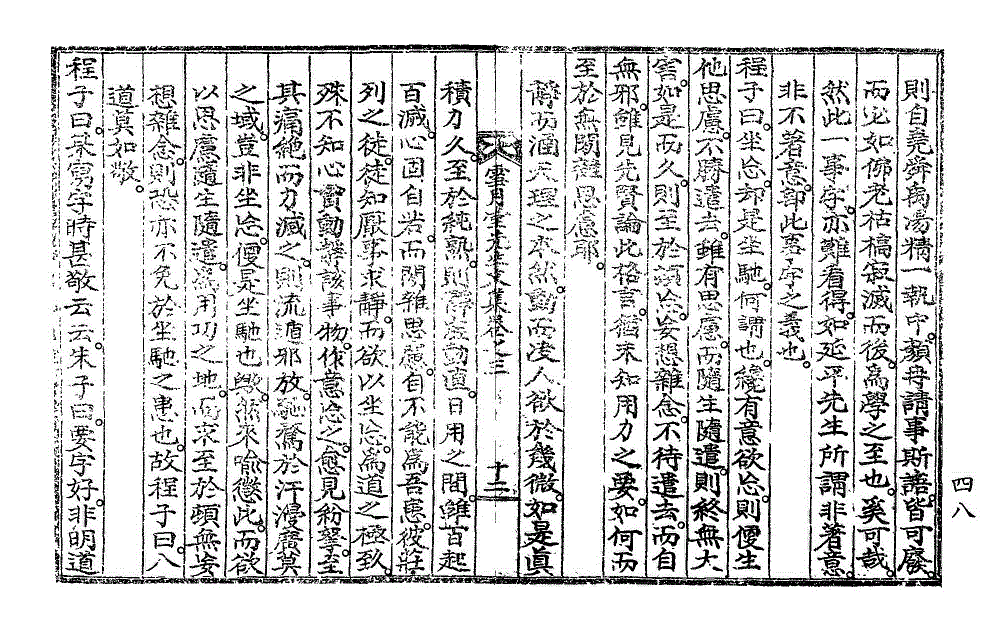 則自堯舜禹湯精一執中。顔冉請事斯語。皆可廢。
而必如佛老枯槁寂滅而後。爲學之至也。奚可哉。
然此一事字。亦難看得。如延平先生所謂非著意。
非不著意。卽此事字之義也。
程子曰。坐忘却是坐馳。何謂也。纔有意欲忘。則便生
他思慮。不勝遣去。雖有思慮。而隨生隨遣。則終無大
害。如是而久。則至於頓忘。妄想雜念。不待遣去。而自
無邪。雖見先賢論此格言。猶未知用力之要。如何而
至於無閑雜思慮耶。
靜而涵天理之本然。動而决人欲於幾微。如是眞
積力久。至於純熟。則靜虛動直。日用之間。雖百起
百滅。心固自若。而閑雜思慮。自不能爲吾患。彼莊
列之徒。徒知厭事求靜。而欲以坐忘。爲道之極致。
殊不知心實動。靜該事物。作意忘之。愈見紛拏。至
其痛絶而力滅之。則流遁邪放。馳騖於汗漫廣莫
之域。豈非坐忘便是坐馳也歟。然來喩懲此。而欲
以思慮隨生隨遣。爲用功之地。而求至於頓無妄
想雜念。則恐亦不免於坐馳之患也。故程子曰。入
道莫如敬。
程子曰。某寫字時甚敬云云。朱子曰。要字好。非明道
雲月堂先生文集卷之三
十二
四八